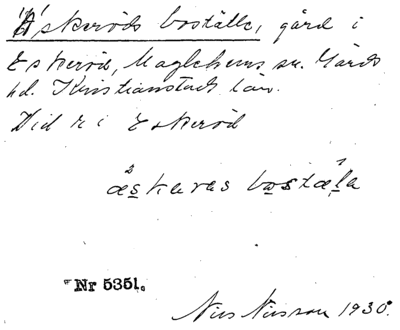 "Äskeröds boställe, gård i
Eskeröd, Maglehems sn. Gärds
hd. Kristianstads län.
Did h i Eskeröd
æskaras bostæla
Nr 5351.
Nils Nilsson 1930.